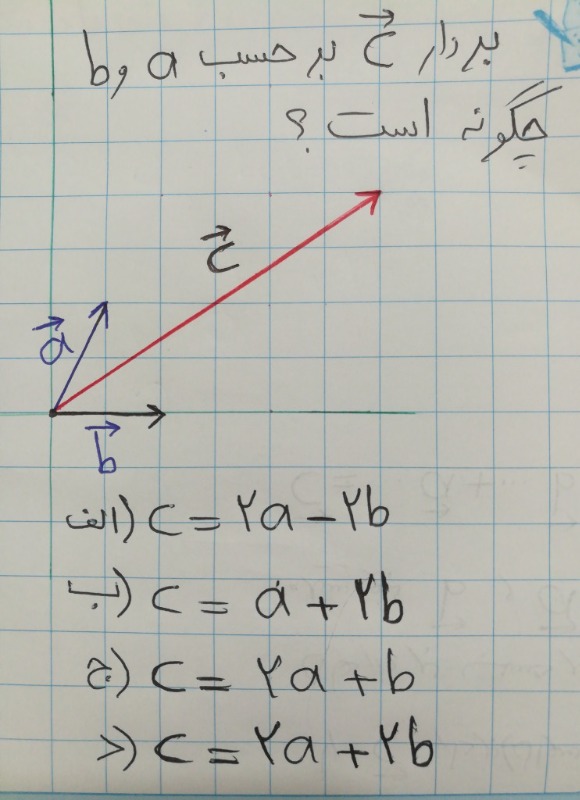 بردار c⃗ بر حسب a و b
چگونه است؟
c⃗
a⃗
b⃗
الف) c = ۲a − ۲b
ب) c = a + ۲b
ج) c = ۲a + b
د) c = ۲a + ۲b